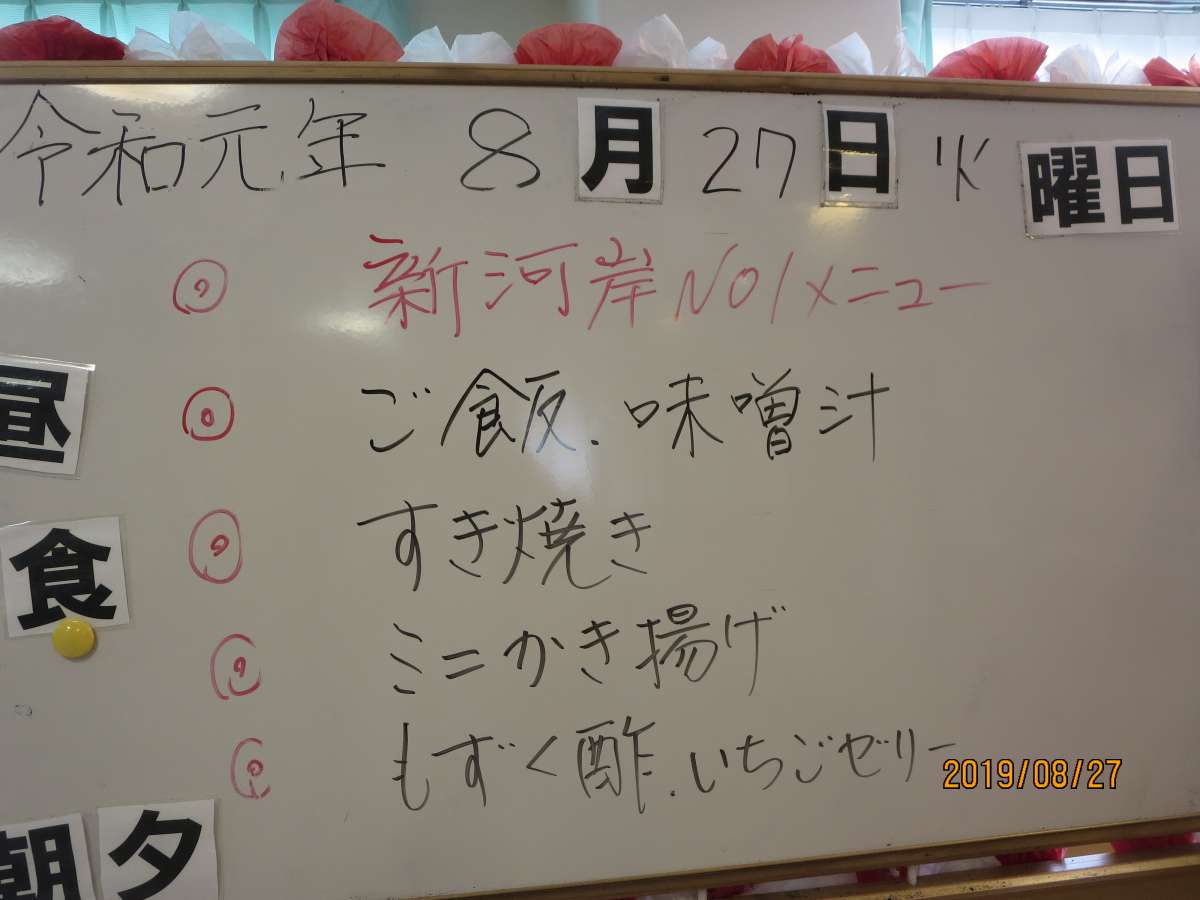 令和元年 8月27日 火曜日
新河岸NO1メニュー
昼食
ご飯.味噌汁
すき焼き
ミニかき揚げ
もずく酢.いちごゼリー
2019/08/27
朝夕